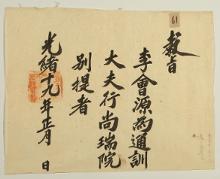 61
敎旨
李會源爲通訓
大夫行尙瑞院
別提者
光緖十九年正月 日